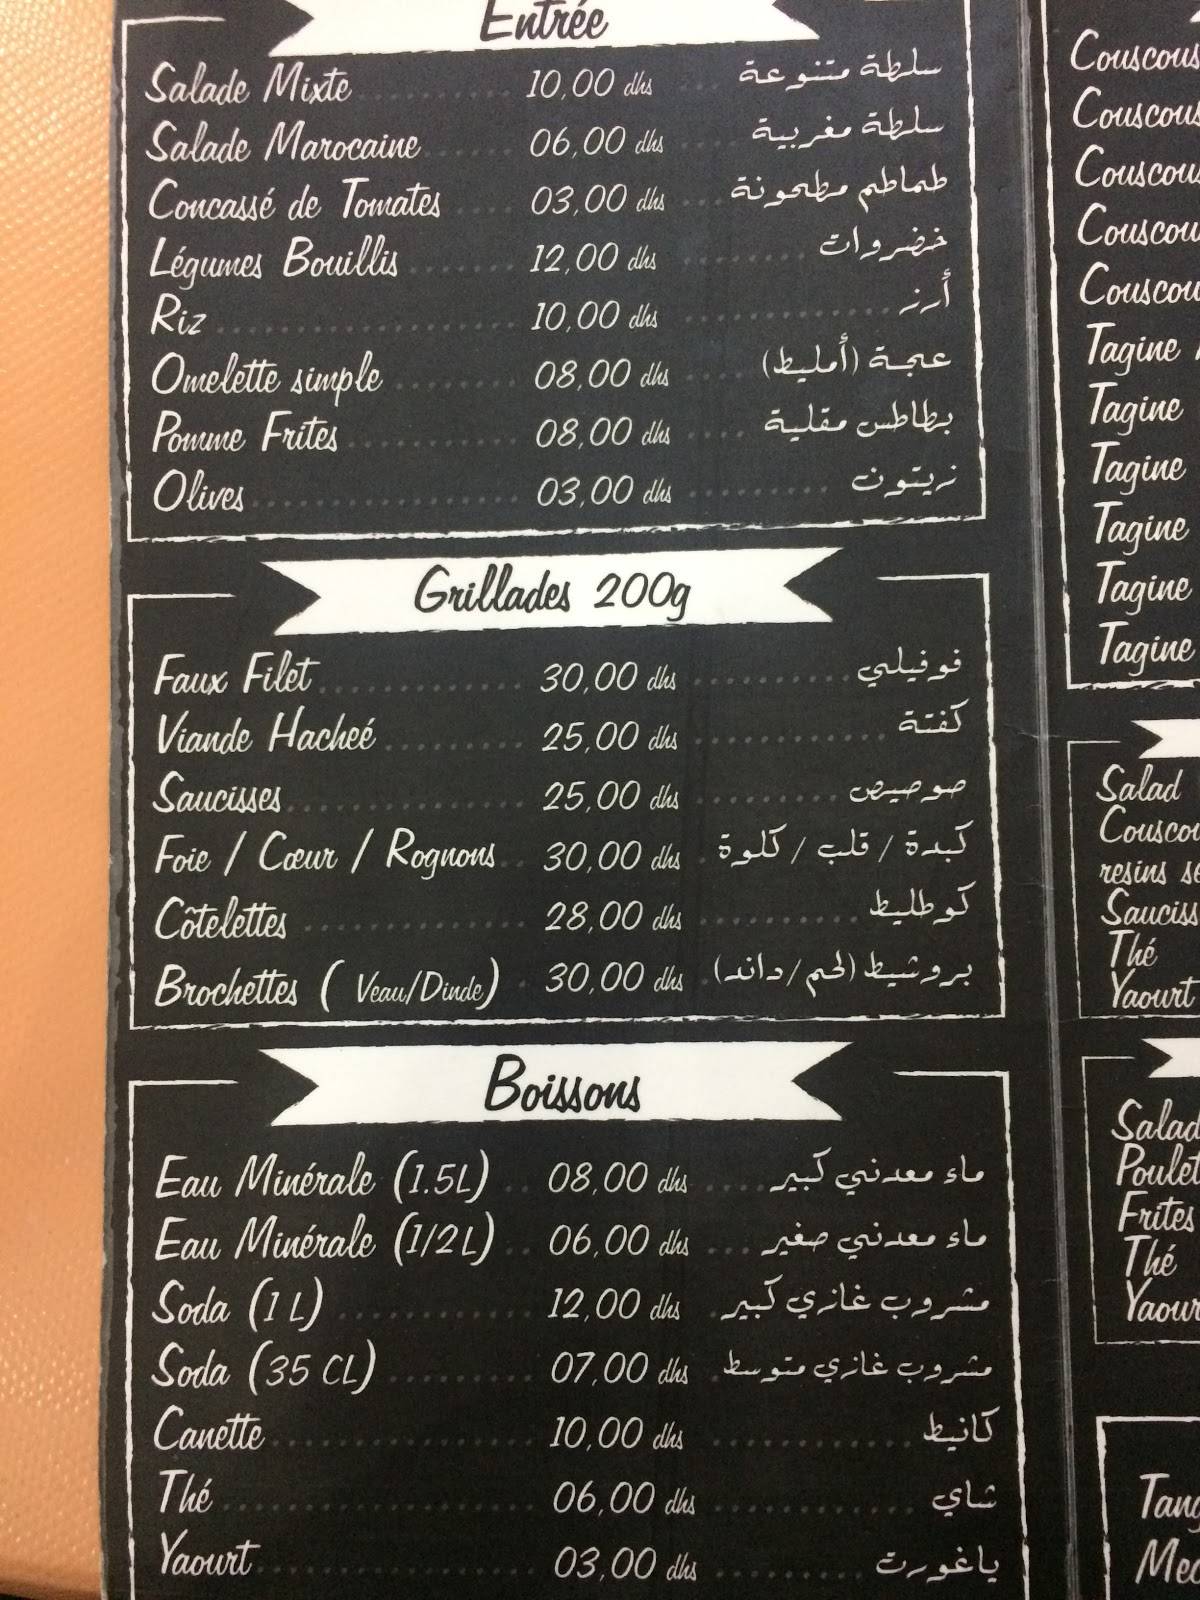 Entrée
Salade Mixte 10,00 dhs سلطة متنوعة
Salade Marocaine 06,00 dhs سلطة مغربية
Concassé de Tomates 03,00 dhs طماطم مطحونة
Légumes Bouillis 12,00 dhs خضروات
Riz 10,00 dhs أرز
Omelette simple 08,00 dhs عجة (أمليط)
Pomme Frites 08,00 dhs بطاطس مقلية
Olives 03,00 dhs زيتون
Grillades 200g
Faux Filet 30,00 dhs فوفيلي
Viande Hacheé 25,00 dhs كفتة
Saucisses 25,00 dhs صوصيص
Foie / Cœur / Rognons 30,00 dhs كبدة / قلب / كلوة
Côtelettes 28,00 dhs كوطليط
Brochettes ( Veau/Dinde) 30,00 dhs بروشيط (لحم/داند)
Boissons
Eau Minérale (1.5L) 08,00 dhs ماء معدني كبير
Eau Minérale (1/2L) 06,00 dhs ماء معدني صغير
Soda (1 L) 12,00 dhs مشروب غازي كبير
Soda (35 CL) 07,00 dhs مشروب غازي متوسط
Canette 10,00 dhs كانيط
Thé 06,00 dhs شاي
Yaourt 03,00 dhs ياغورت
Couscous
Couscous
Couscous
Couscou
Couscou
Tagine
Tagine
Tagine
Tagine
Tagine
Tagine
Salad
Couscou
resins se
Sauciss
Thé
Yaourt
Salad
Poulet
Frites
Thé
Yaour